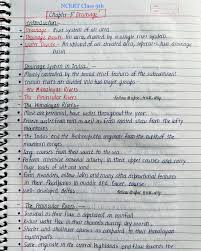 NCERT Class 9th
Chapter-3 Drainage
Introduction-
Drainage - River system of an area
Drainage Basin - An area drained by a single river system
Water Divide - An upland of an elevated area, separates two drainage basin
Drainage System in India-
Mainly controlled by the broad relief features of the subcontinent
Indian rivers are divided into two major groups-
The Himalayan Rivers
The Peninsular Rivers
The Himalayan Rivers-
Most are perennial, have water throughout the year.
Receive water from rain as well as from melted snow from the lofty mountains
The Indus and the Brahmaputra originate from the north of the mountain ranges
Long courses from their source to the sea
Perform intensive erosional activity in their upper courses and carry huge loads of silt and sand
Form meanders, oxbow lakes and many other depositional features in their floodplains in middle and lower course
Well-developed deltas
The Peninsular Rivers-
Seasonal as their flow is dependent on rainfall
Reduced water flow in their channels during dry months
Shorter and shallower courses as compared to their Himalayan counterparts
Some originate in the central highlands and flow towards the